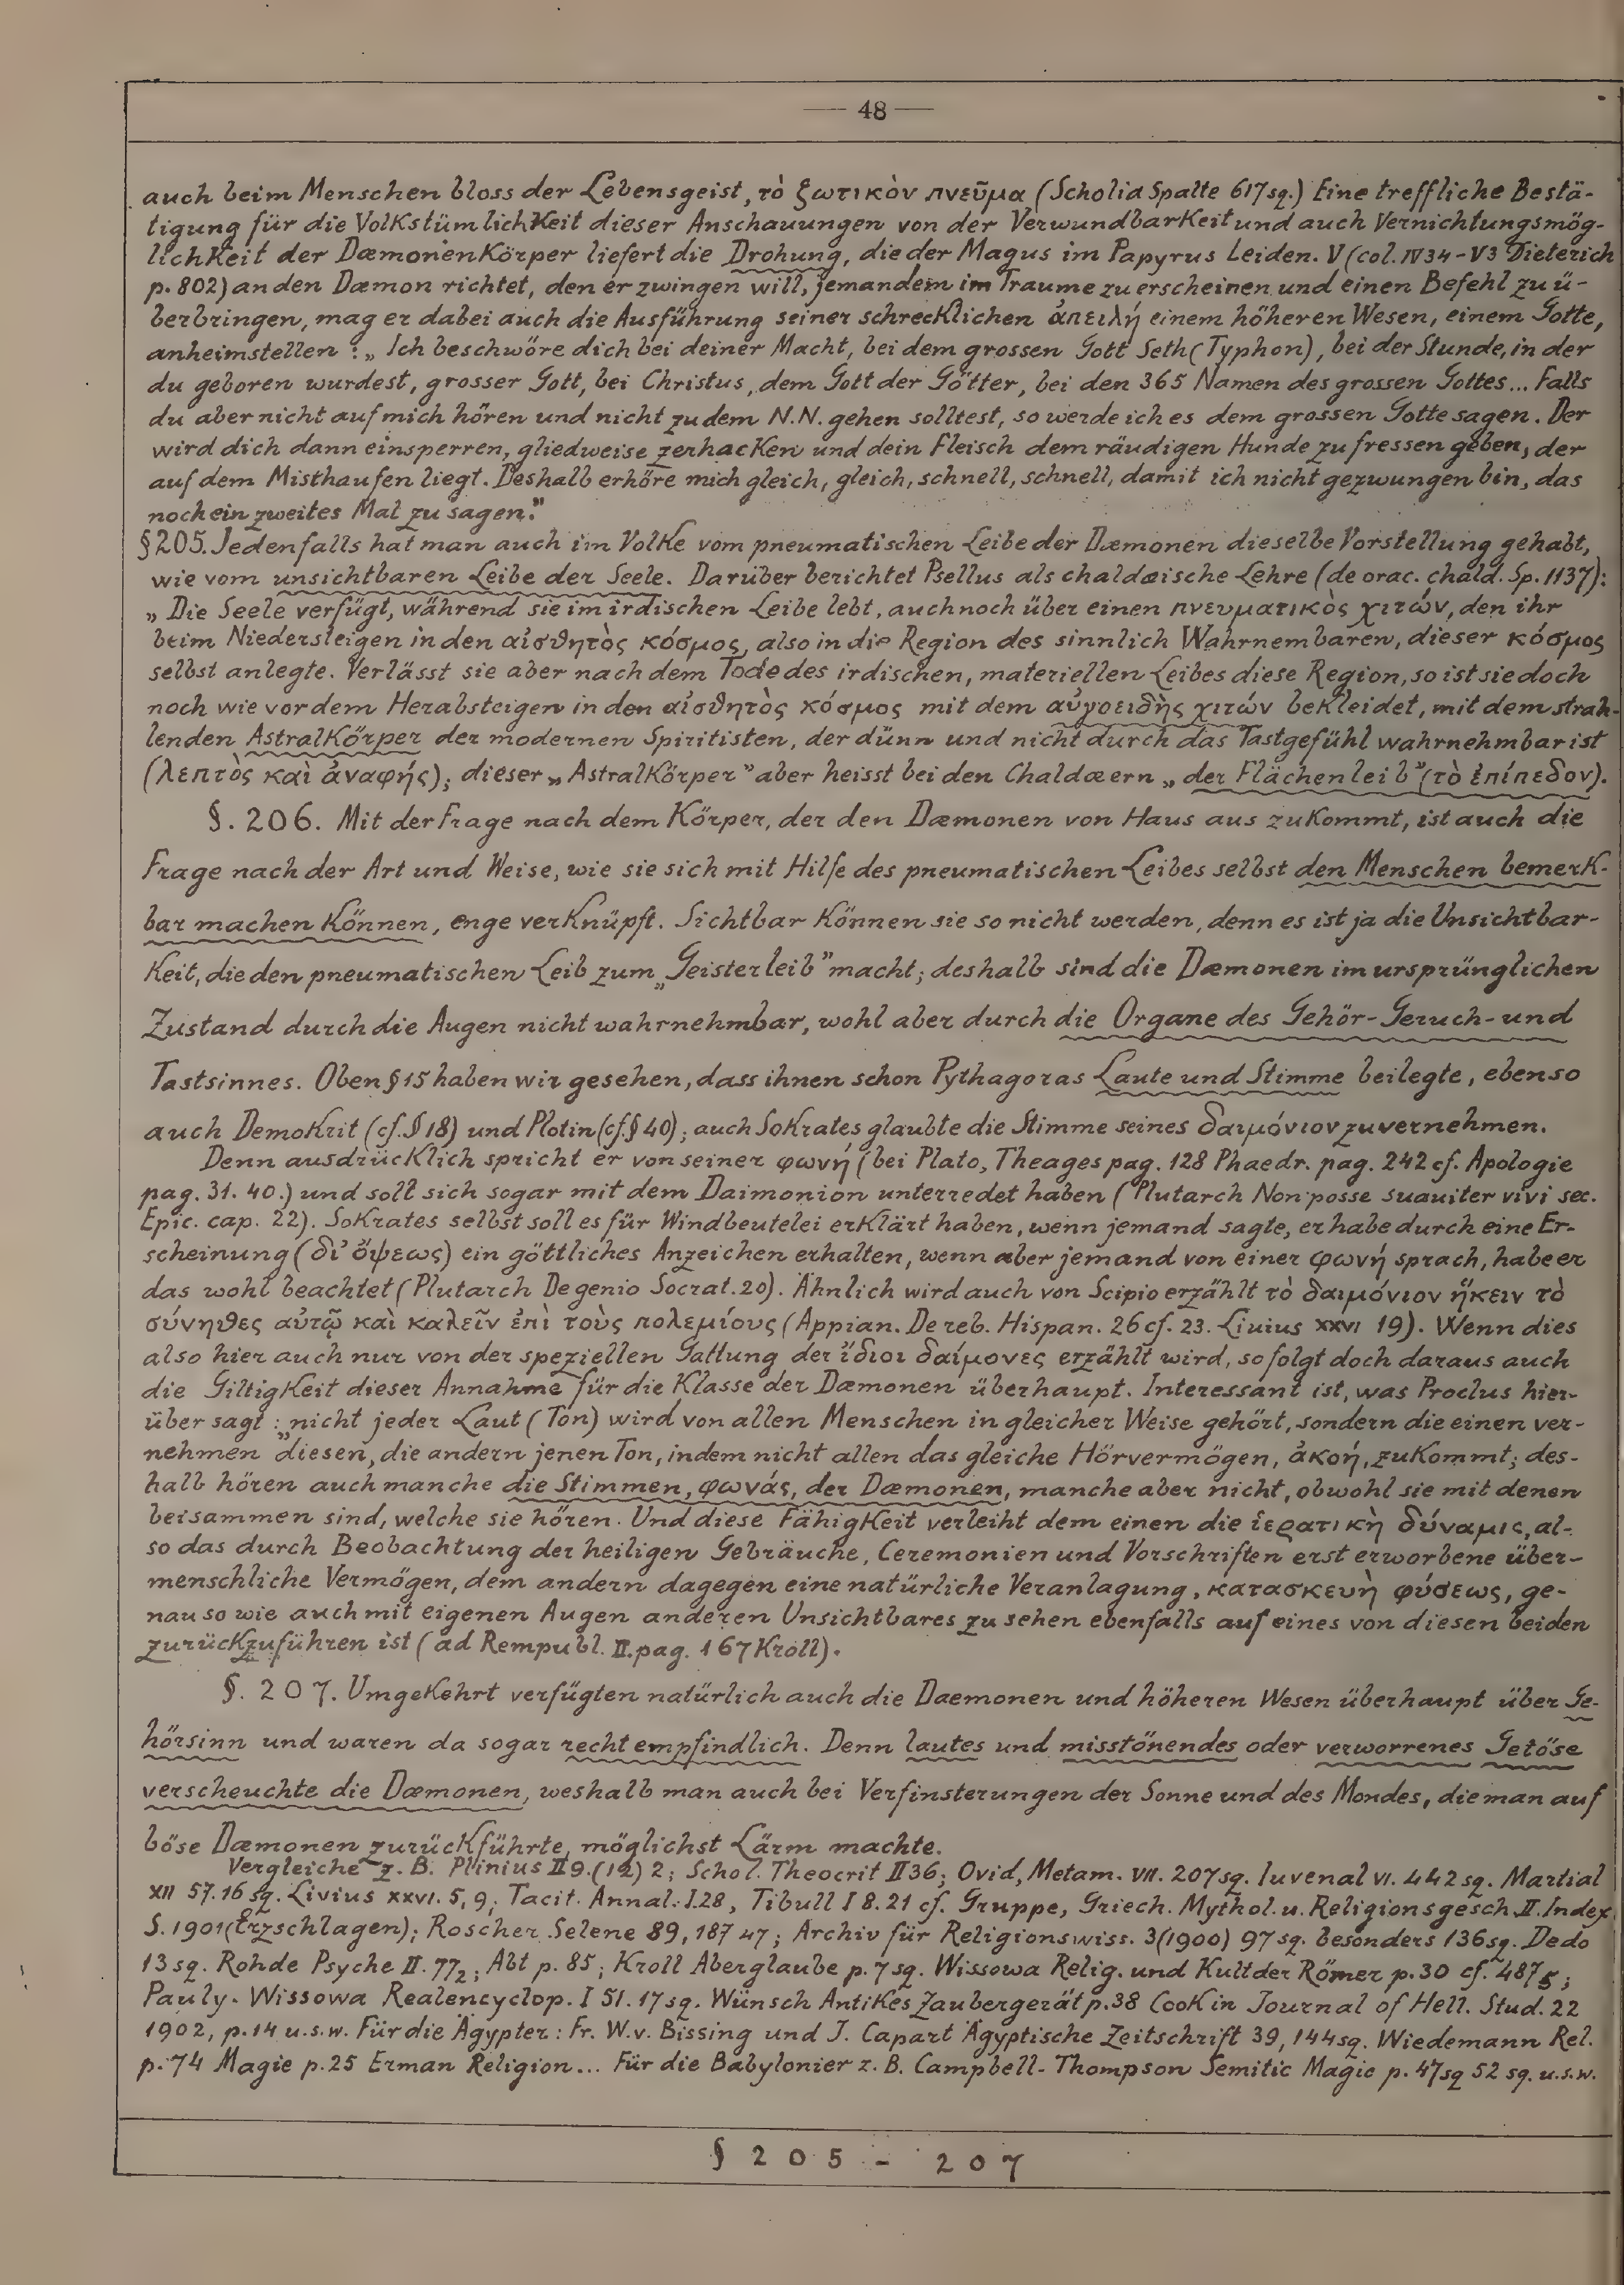 — 48 —
auch beim Menschen bloss der Lebensgeist, τὸ ζωτικὸν πνεῦμα (Scholia Spalte 617sq.) Eine treffliche Bestä-
tigung für die Volkstümlichkeit dieser Anschauungen von der Verwundbarkeit und auch Vernichtungsmög-
lichkeit der Dæmonenkörper liefert die Drohung, die der Magus im Papyrus Leiden. V (col. IV 34 - V 3 Dieterich
p. 802) an den Dæmon richtet, den er zwingen will, jemandem im Traume zu erscheinen und einen Befehl zu ü-
berbringen, mag er dabei auch die Ausführung seiner schrecklichen ἀπειλή einem höheren Wesen, einem Gotte,
anheimstellen: „Ich beschwöre dich bei deiner Macht, bei dem grossen Gott Seth (Typhon), bei der Stunde, in der
du geboren wurdest, grosser Gott, bei Christus, dem Gott der Götter, bei den 365 Namen des grossen Gottes... Falls
du aber nicht auf mich hören und nicht zu dem N.N. gehen solltest, so werde ich es dem grossen Gotte sagen. Der
wird dich dann einsperren, gliedweise zerhacken und dein Fleisch dem räudigen Hunde zu fressen geben, der
auf dem Misthaufen liegt. Deshalb erhöre mich gleich, gleich, schnell, schnell, damit ich nicht gezwungen bin, das
noch ein zweites Mal zu sagen."
§205. Jedenfalls hat man auch im Volke vom pneumatischen Leibe der Dæmonen dieselbe Vorstellung gehabt,
wie vom unsichtbaren Leibe der Seele. Darüber berichtet Psellus als chaldæische Lehre (de orac. chald. Sp. 1137):
„Die Seele verfügt, während sie im irdischen Leibe lebt, auch noch über einen πνευματικὸς χιτών, den ihr
beim Niedersteigen in den αἰσθητὸς κόσμος, also in die Region des sinnlich Wahrnembaren, dieser κόσμος
selbst anlegte. Verlässt sie aber nach dem Tode des irdischen, materiellen Leibes diese Region, so ist sie doch
noch wie vor dem Herabsteigen in den αἰσθητὸς κόσμος mit dem αὐγοειδὴς χιτών bekleidet, mit dem strah-
lenden Astralkörper der modernen Spiritisten, der dünn und nicht durch das Tastgefühl wahrnehmbar ist
(λεπτὸς καὶ ἀναφής); dieser „Astralkörper" aber heisst bei den Chaldæern „der Flächenleib" (τὸ ἐπίπεδον).
§. 206. Mit der Frage nach dem Körper, der den Dæmonen von Haus aus zukommt, ist auch die
Frage nach der Art und Weise, wie sie sich mit Hilfe des pneumatischen Leibes selbst den Menschen bemerk-
bar machen können, enge verknüpft. Sichtbar können sie so nicht werden, denn es ist ja die Unsichtbar-
keit, die den pneumatischen Leib zum „Geisterleib" macht; deshalb sind die Dæmonen im ursprünglichen
Zustand durch die Augen nicht wahrnehmbar, wohl aber durch die Organe des Gehör- Geruch- und
Tastsinnes. Oben §15 haben wir gesehen, dass ihnen schon Pythagoras Laute und Stimme beilegte, ebenso
auch Demokrit (cf. § 18) und Plotin (cf. § 40); auch Sokrates glaubte die Stimme seines δαιμόνιον zu vernehmen.
Denn ausdrücklich spricht er von seiner φωνή (bei Plato, Theages pag. 128 Phaedr. pag. 242 cf. Apologie
pag. 31. 40.) und soll sich sogar mit dem Daimonion unterredet haben (Plutarch Non posse suauiter vivi sec.
Epic. cap. 22). Sokrates selbst soll es für Windbeutelei erklärt haben, wenn jemand sagte, er habe durch eine Er-
scheinung (δι' ὄψεως) ein göttliches Anzeichen erhalten, wenn aber jemand von einer φωνή sprach, habe er
das wohl beachtet (Plutarch De genio Socrat. 20). Ähnlich wird auch von Scipio erzählt τὸ δαιμόνιον ἥκειν τὸ
σύνηθες αὐτῷ καὶ καλεῖν ἐπὶ τοὺς πολεμίους (Appian. De reb. Hispan. 26 cf. 23. Liuius XXVI 19). Wenn dies
also hier auch nur von der speziellen Gattung der ἴδιοι δαίμονες erzählt wird, so folgt doch daraus auch
die Giltigkeit dieser Annahme für die Klasse der Dæmonen überhaupt. Interessant ist, was Proclus hier-
über sagt: „nicht jeder Laut (Ton) wird von allen Menschen in gleicher Weise gehört, sondern die einen ver-
nehmen diesen, die andern jenen Ton, indem nicht allen das gleiche Hörvermögen, ἀκοή, zukommt; des-
halb hören auch manche die Stimmen, φωνάς, der Dæmonen, manche aber nicht, obwohl sie mit denen
beisammen sind, welche sie hören. Und diese Fähigkeit verleiht dem einen die ἱερατικὴ δύναμις, al-
so das durch Beobachtung der heiligen Gebräuche, Ceremonien und Vorschriften erst erworbene über-
menschliche Vermögen, dem andern dagegen eine natürliche Veranlagung, κατασκευὴ φύσεως, ge-
nau so wie auch mit eigenen Augen anderen Unsichtbares zu sehen ebenfalls auf eines von diesen beiden
zurückzuführen ist (ad Rempubl. II. pag. 167 Kroll).
§. 207. Umgekehrt verfügten natürlich auch die Daemonen und höheren Wesen überhaupt über Ge-
hörsinn und waren da sogar recht empfindlich. Denn lautes und misstönendes oder verworrenes Getöse
verscheuchte die Dæmonen, weshalb man auch bei Verfinsterungen der Sonne und des Mondes, die man auf
böse Dæmonen zurückführte, möglichst Lärm machte.
Vergleiche z. B. Plinius II 9. (12) 2; Schol. Theocrit II 36; Ovid, Metam. VII. 207 sq. Iuvenal VI. 442 sq. Martial
XII 57. 16 sq. Livius XXVI. 5, 9; Tacit. Annal. I. 28, Tibull I 8. 21 cf. Gruppe, Griech. Mythol. u. Religionsgesch. II. Index
S. 1901 (Erzschlagen); Roscher Selene 89, 187 47; Archiv für Religionswiss. 3 (1900) 97 sq. besonders 136 sq. Dedo
13 sq. Rohde Psyche II. 77₂; Abt p. 85; Kroll Aberglaube p. 7 sq. Wissowa Relig. und Kult der Römer p. 30 cf. 487₅;
Pauly-Wissowa Realencyclop. I 51. 17 sq. Wünsch Antikes Zaubergerät p. 38 Cook in Journal of Hell. Stud. 22
1902, p. 14 u.s.w. Für die Ägypter: Fr. W. v. Bissing und J. Capart Ägyptische Zeitschrift 39, 144 sq. Wiedemann Rel.
p. 74 Magie p. 25 Erman Religion... Für die Babylonier z. B. Campbell-Thompson Semitic Magic p. 47 sq 52 sq. u.s.w.
§ 205 - 207